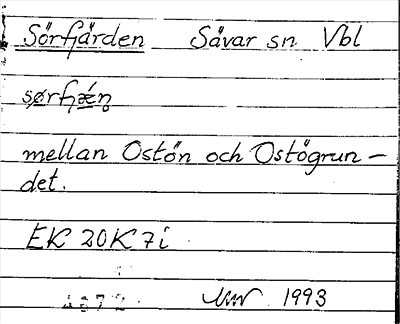 Sörfjärden Sävar sn Vbl
sørfjǽn̥
mellan Ostön och Ostögrun-
det.
EK 20K7i
1993